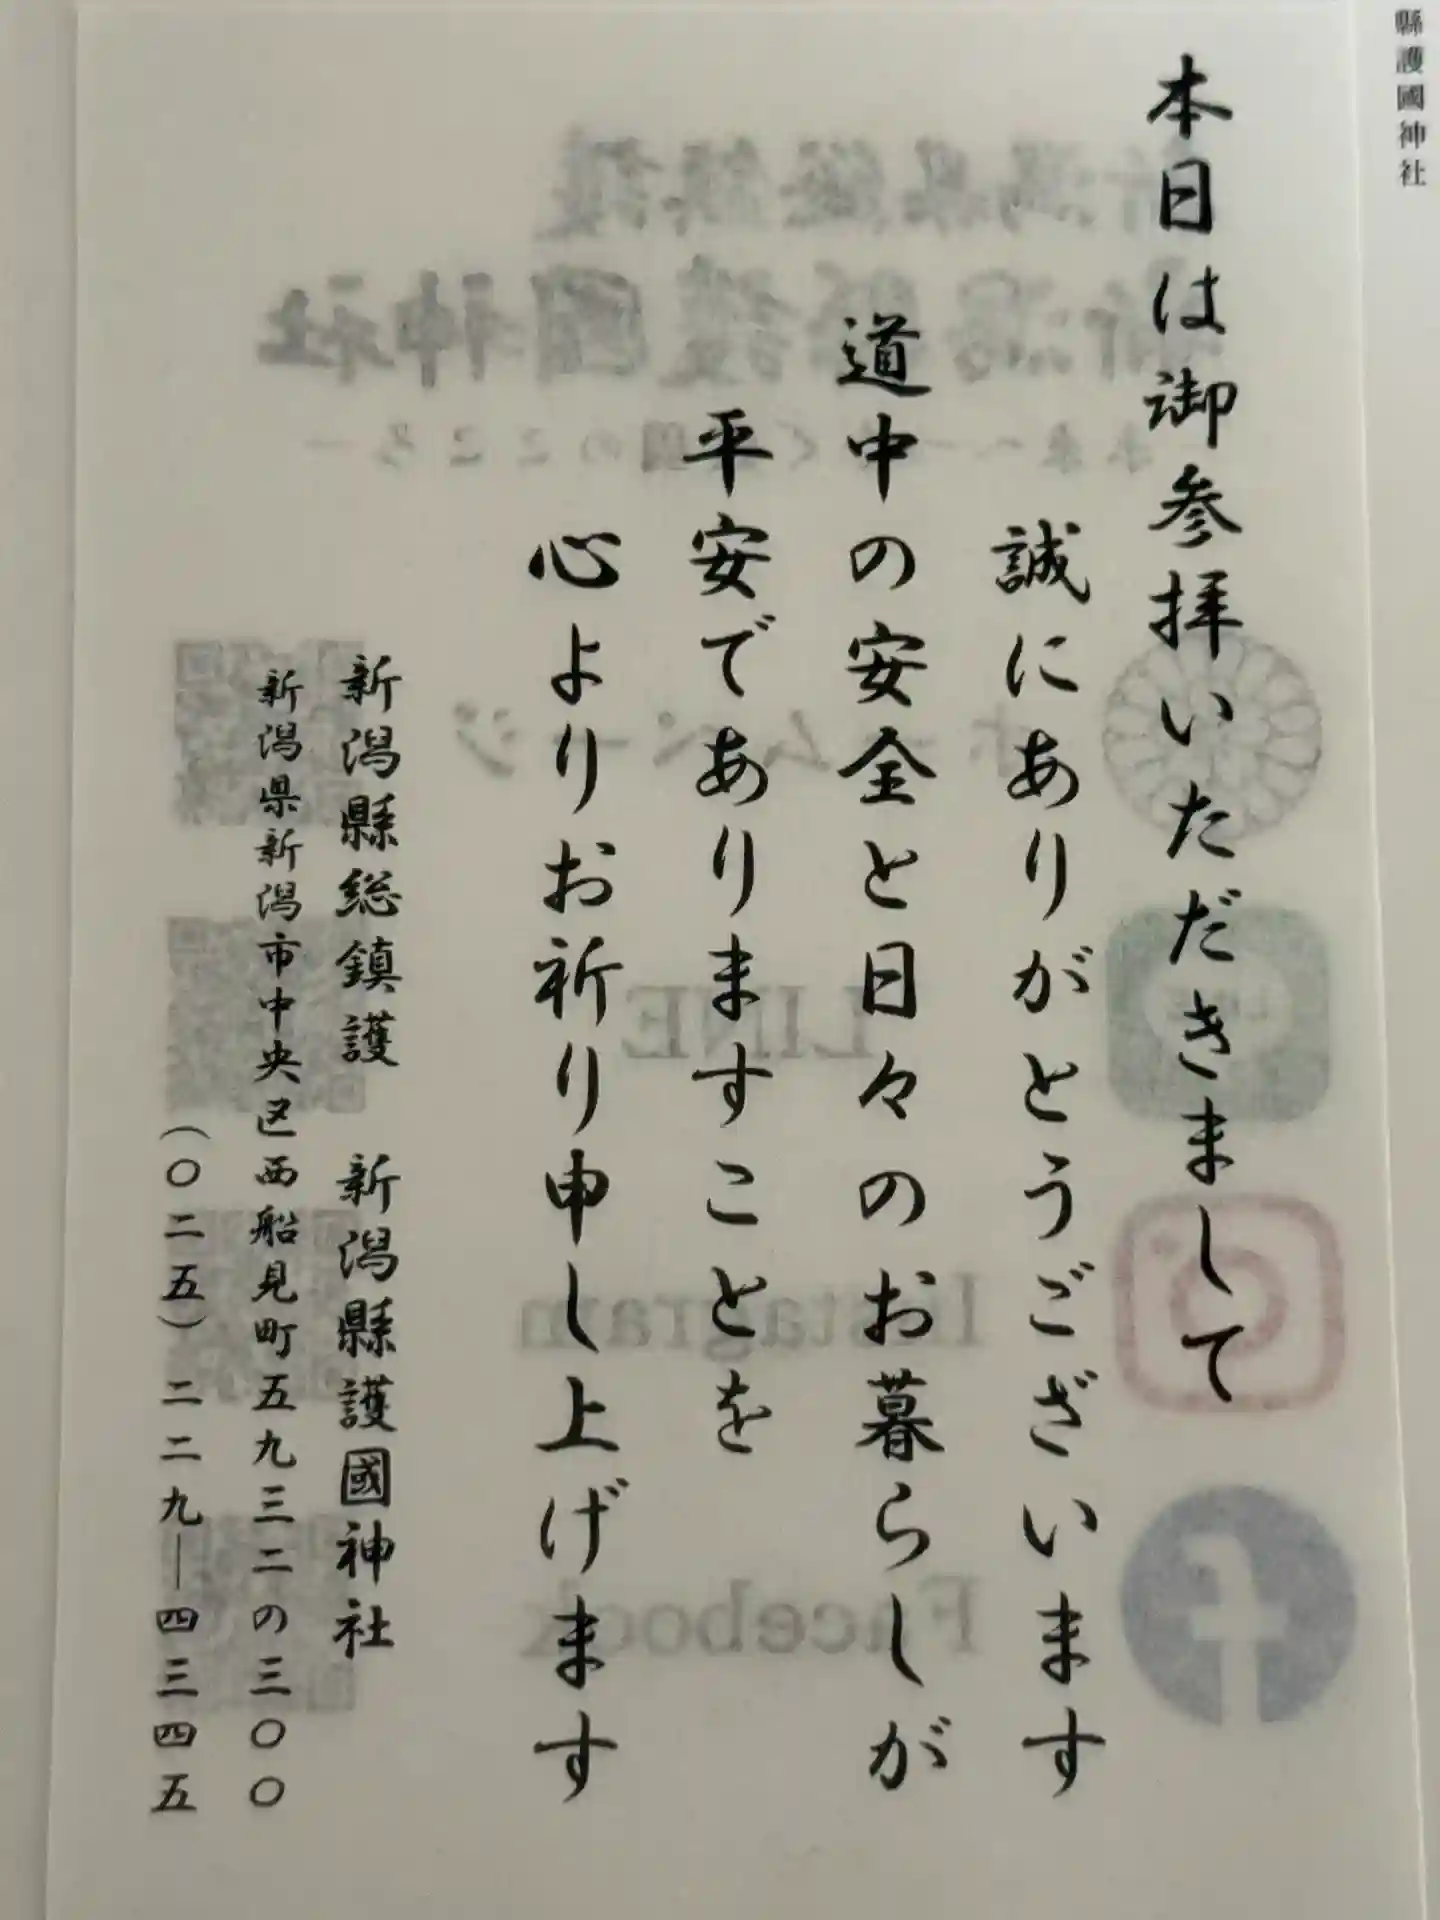 縣護國神社
本日は御参拝いただきまして
誠にありがとうございます
道中の安全と日々のお暮らしが
平安でありますことを
心よりお祈り申し上げます
新潟縣総鎮護　新潟縣護國神社
新潟県新潟市中央区西船見町五九三二の三〇〇
（〇二五）二二九―四三四五
新潟縣護國神社
ホームページ
LINE
Instagram
Facebook